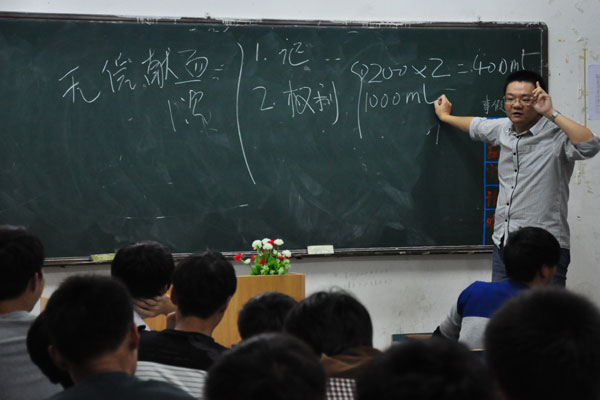 无偿献血
1次
1. 记
2. 权利
200×2=400ml
1000ml